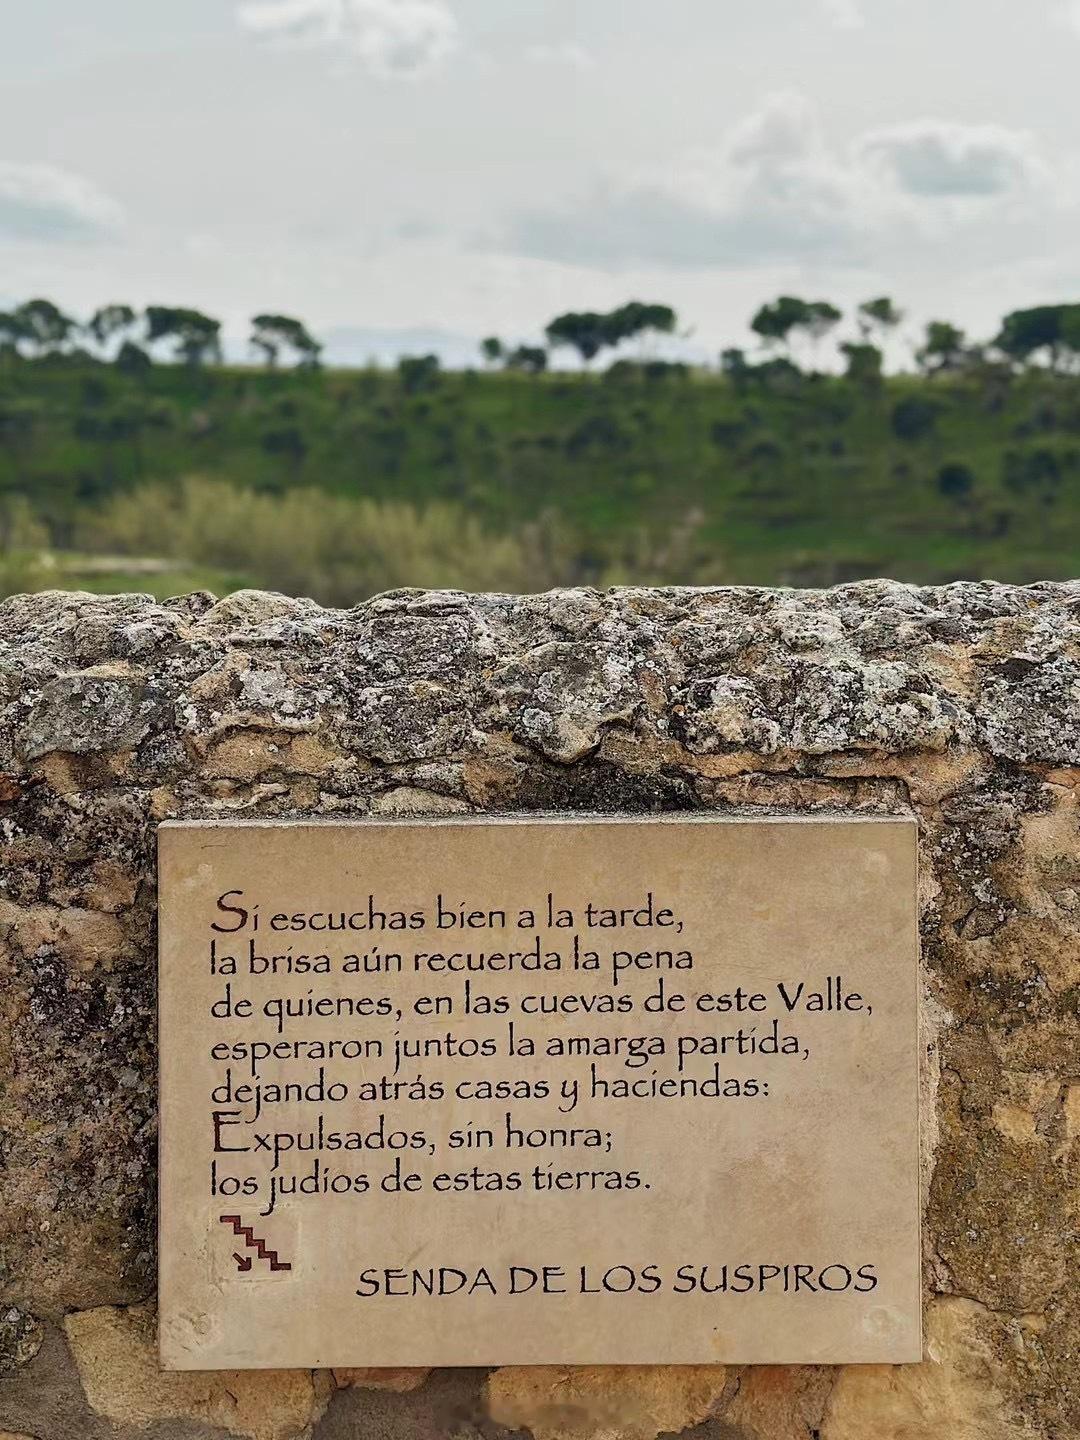 Si escuchas bien a la tarde,
la brisa aún recuerda la pena
de quienes, en las cuevas de este Valle,
esperaron juntos la amarga partida,
dejando atrás casas y haciendas:
Expulsados, sin honra;
los judíos de estas tierras.
SENDA DE LOS SUSPIROS